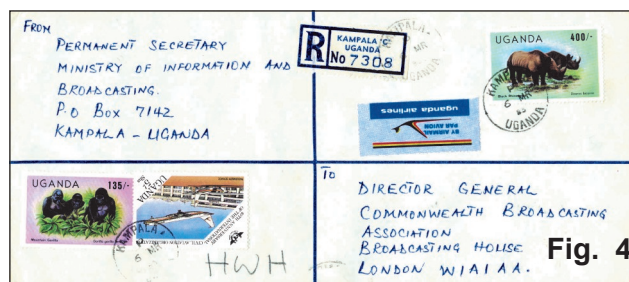 FROM
PERMANENT SECRETARY
MINISTRY OF INFORMATION AND
BROADCASTING.
P.O BOX 7142
KAMPALA - UGANDA
R
KAMPALA 'C'
UGANDA
No 7308
KAMPALA
MR
UGANDA
UGANDA 400/-
KAMPALA
6 MR
UGANDA
uganda airlines
BY AIRMAIL
PAR AVION
UGANDA 135/-
KAMPALA
6
UGANDA
HWH
TO
DIRECTOR GENERAL
COMMONWEALTH BROADCASTING
ASSOCIATION
BROADCASTING HOUSE
LONDON W1A1AA.
Fig. 4